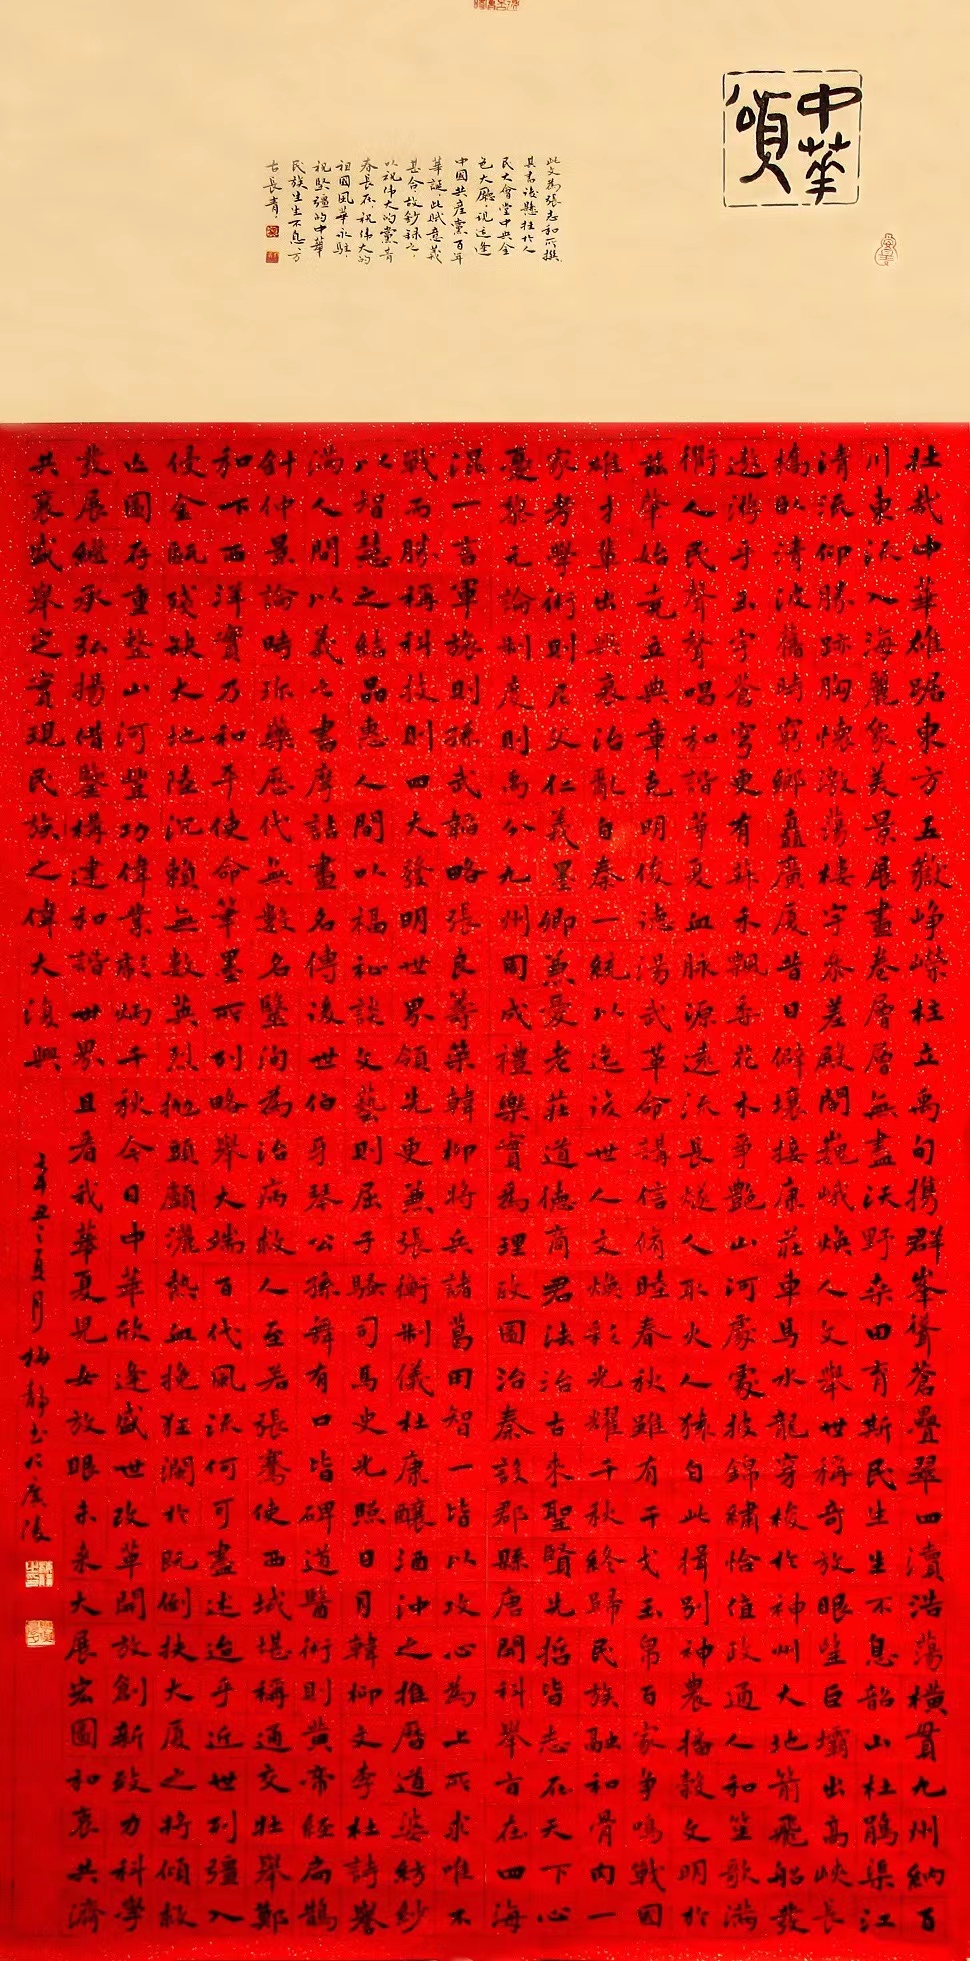 中華
頌
此文為張志和所撰
其書法懸挂於人
民大會堂中央金
色大廳現适逢
中國共産黨百年
華誕此賦意義
甚合故鈔録之
以祝伟大的黨青
春長在祝伟大的
祖國風華永駐
祝堅强的中華
民族生生不息万
古長青
壯哉中華雄踞東方五嶽峥嶸柱立禹甸攜群峯聳蒼疊翠四瀆浩蕩横貫九州納百
川東流入海麗象美景展畫卷層層無盡沃野桑田育斯民生生不息韶山杜鵑渠江
清流仰勝跡胸懷激蕩樓宇參差殿閣巍峨焕人文舉世稱奇放眼望巨壩出高峽長
橋卧清波舊時窮鄉矗廣厦昔日僻壤接康莊車馬水龍穿梭於神州大地箭飛船發
遨游乎玉宇蒼穹更有菽禾飄香花木争艷山河處處披錦繡恰值政通人和笙歌滿
衢人民聲聲唱和諧華夏血脉源遠流長燧人取火人猿自此揖别神農播穀文明於
茲肇始堯立典章克明俊德湯武革命講信脩睦春秋雖有干戈玉帛百家争鳴戰国
雄才輩出興衰治亂自秦一統以迄後世人文焕彩光耀千秋終歸民族融和骨肉一
家考學術則尼父仁義墨卿兼愛老莊道德商君法治古來聖賢先哲皆志在天下心
憂黎元論制度則禹分九州周成禮樂實為理政圖治秦設郡縣唐開科舉旨在四海
混一言軍旅則孫武韜略張良籌策韓柳將兵諸葛用智一皆以攻心為上所求唯不
戰而勝稱科技則四大發明世界領先更兼張衡制儀杜康釀酒沖之推曆道婆紡紗
以智慧之結晶惠人間以福祉談文藝則屈子騷司馬史光照日月韓柳文李杜詩譽
滿人間以義之書摩詰畫名傳後世伯牙琴公孫舞有口皆碑道醫術則黄帝經扁鵲
針仲景論時珍藥歷代無數名醫洵為治病救人至若張騫使西域堪稱通交壯舉鄭
和下西洋實乃和平使命筆墨所列略舉大端百代風流何可盡述迨乎近世列彊入
侵金甌殘缺大地陸沉賴無數英烈抛頭顱灑熱血挽狂瀾於既倒扶大厦之將傾救
亡圖存重整山河豐功偉業彪炳千秋今日中華欣逢盛世改革開放創新致力科學
發展繼承弘揚借鑒構建和諧世界且看我華夏兒女放眼未來大展宏圖和衷共濟
共襄盛舉定實現民族之偉大復興
辛丑之夏月 靜書於廣陵